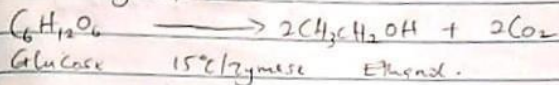 C₆H₁₂O₆ ⟶ 2CH₃CH₂OH + 2CO₂
Glucose 15°C/zymase Ethanol.